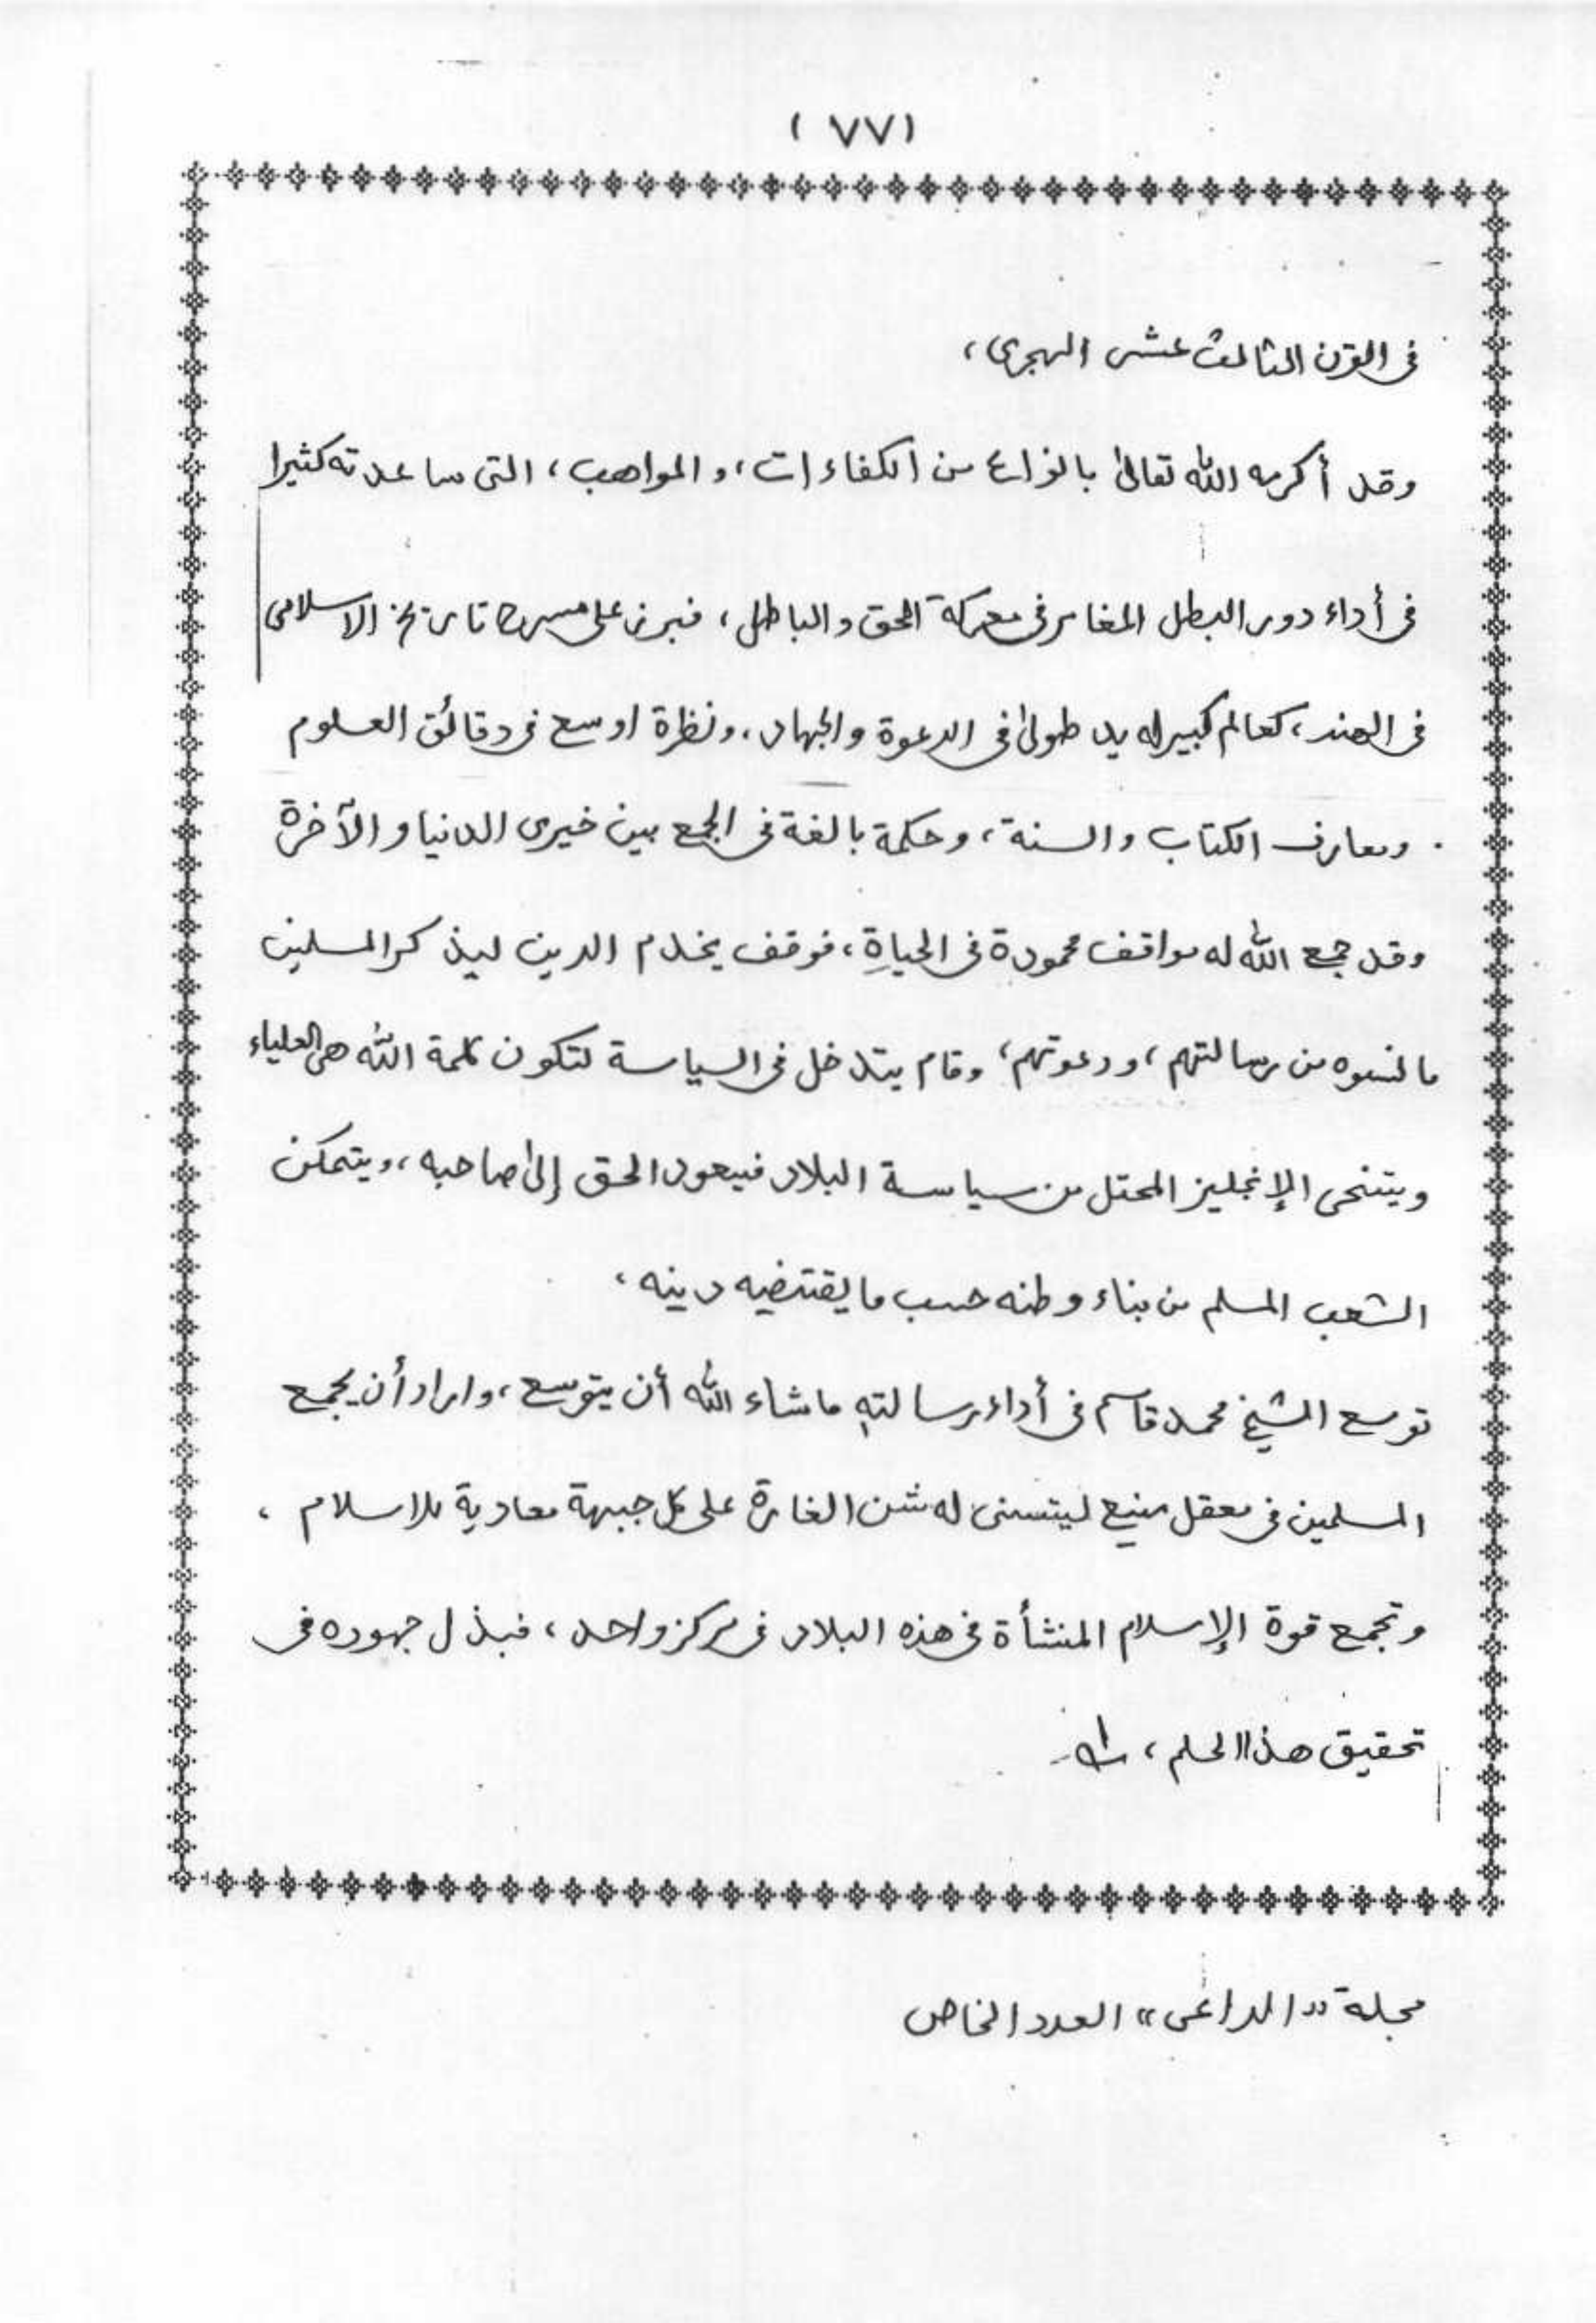 ( ٧٧ )
فى القرن الثالث عشر الهجرى،
وقد أكرمه الله تعالىٰ بانواع من الكفاءات، والمواهب، التى ساعدته كثيرا
فى أداء دور البطل المغامر فى معركة الحق والباطل، فبرز على مسرح تاريخ الاسلامى
فى الهند، كعالم كبير له يد طولىٰ فى الدعوة والجهاد، ونظرة اوسع فى دقائق العلوم
ومعارف الكتاب والسنة، وحكمة بالغة فى الجمع بين خيرى الدنيا والآخرة
وقد جمع الله له مواقف محمودة فى الحياةِ، فوقف يخدم الدين ليذكر المسلمين
ما نسوه من رسالتهم، ودعوتهم، وقام يتدخل فى السياسة لتكون كلمة الله هى العلياء
ويتنحى الإنجليز المحتل من سياسة البلاد فيعود الحق إلىٰ صاحبه، ويتمكن
الشعب المسلم من بناء وطنه حسب ما يقتضيه دينه،
توسع الشيخ محمد قاسم فى أداء رسالتهِ ماشاء الله أن يتوسع، واراد أن يجمع
المسلمين فى معقل منيع ليتسنى له شن الغارة على كل جبهة معادية للاسلام،
وتجمع قوة الإسلام المنشأة فى هذه البلاد فى مركز واحد، فبذل جهوده فى
تحقيق هذا الحلم،
مجلة "الداعى" العدد الخاص